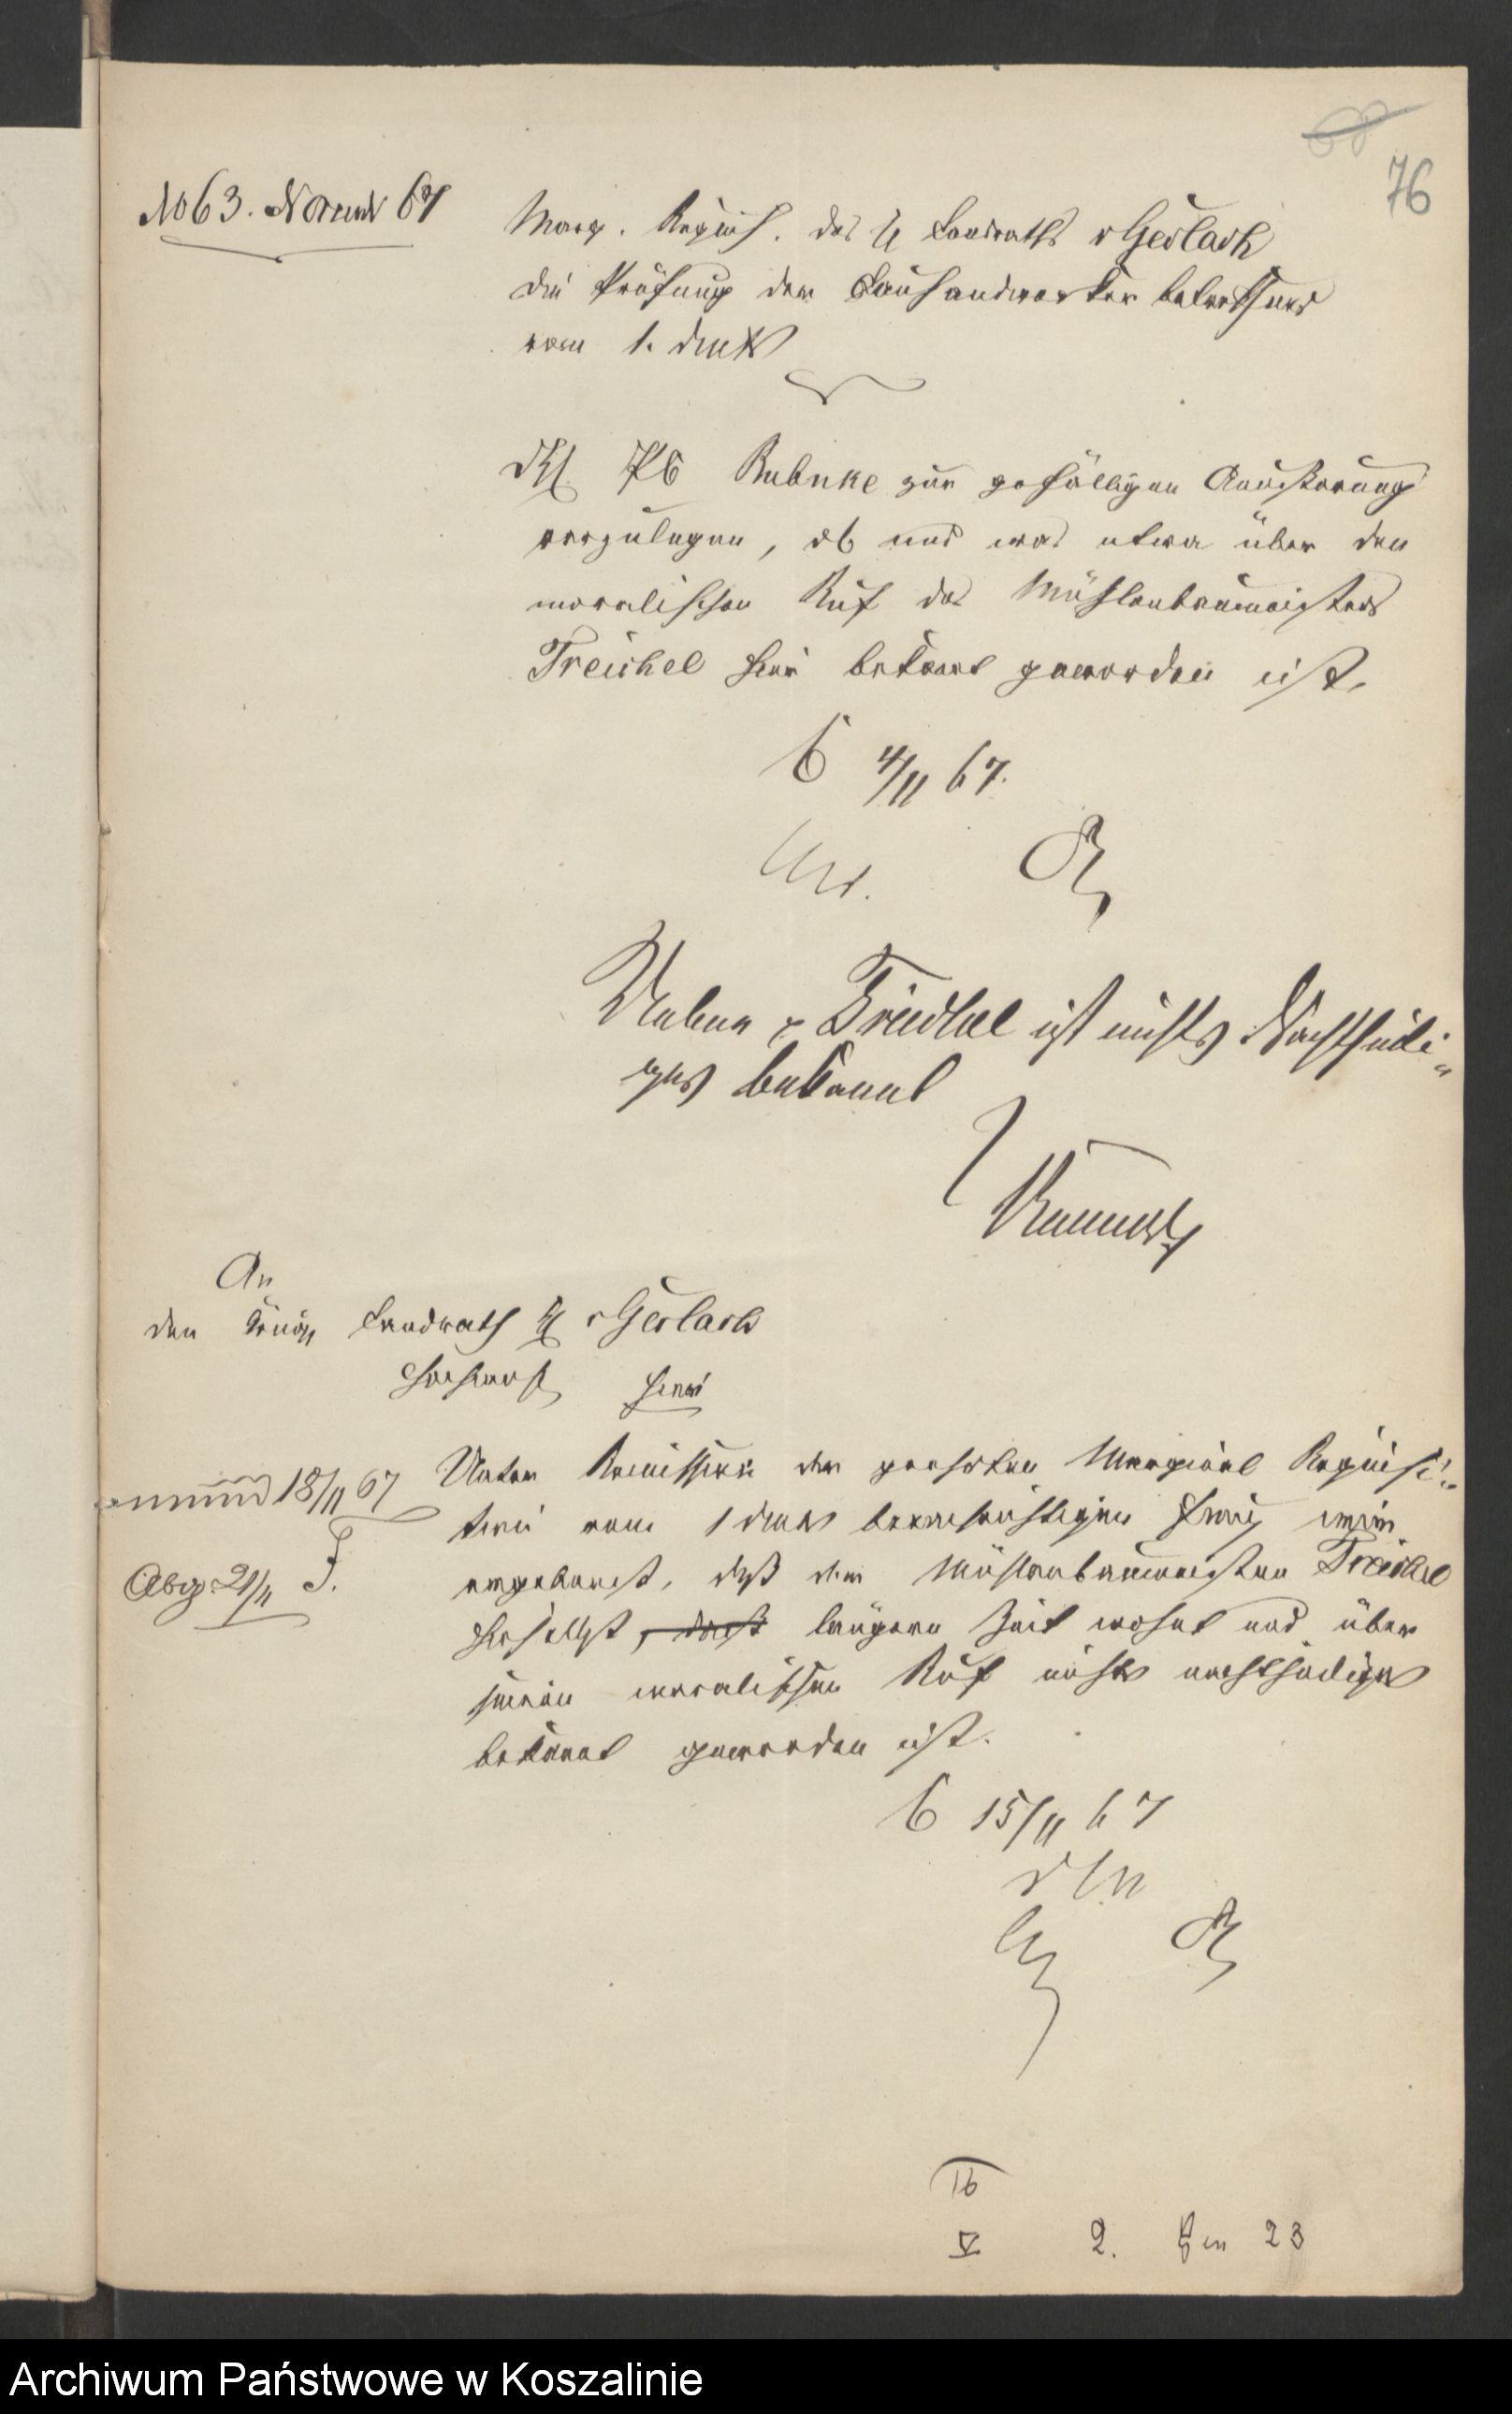 76
No 63. Novemb 67
Marg. Requis. des Landraths v Gerlach
die Prüfung der Bauhandwerker betreffend
vom 1. d Mts
PC Rubnke zur gefälligen Aeußerung
vorzulegen, ob und was etwa über den
moralischen Ruf des Mühlenbaumeisters
Treichel hier bekannt geworden ist.
C 4/11 67.
Ueber p Treichel ist nichts Nachtheili-
ges bekannt
An
den Königl Landrath v Gerlach
Hochwohlg hier
mund 18/11 67
Abg. 21/11 J.
Unter Remission der geehrten Marginal Requisi-
tion vom 1 d Mts benachrichtigen
ergebenst, daß der Mühlenbaumeister Treichel
hierselbst, längere Zeit wohnt und über
seinen moralischen Ruf nichts nachtheiliges
bekannt geworden ist.
C 15/11 67
d M
Ib
V 2. Gen 23
Archiwum Państwowe w Koszalinie